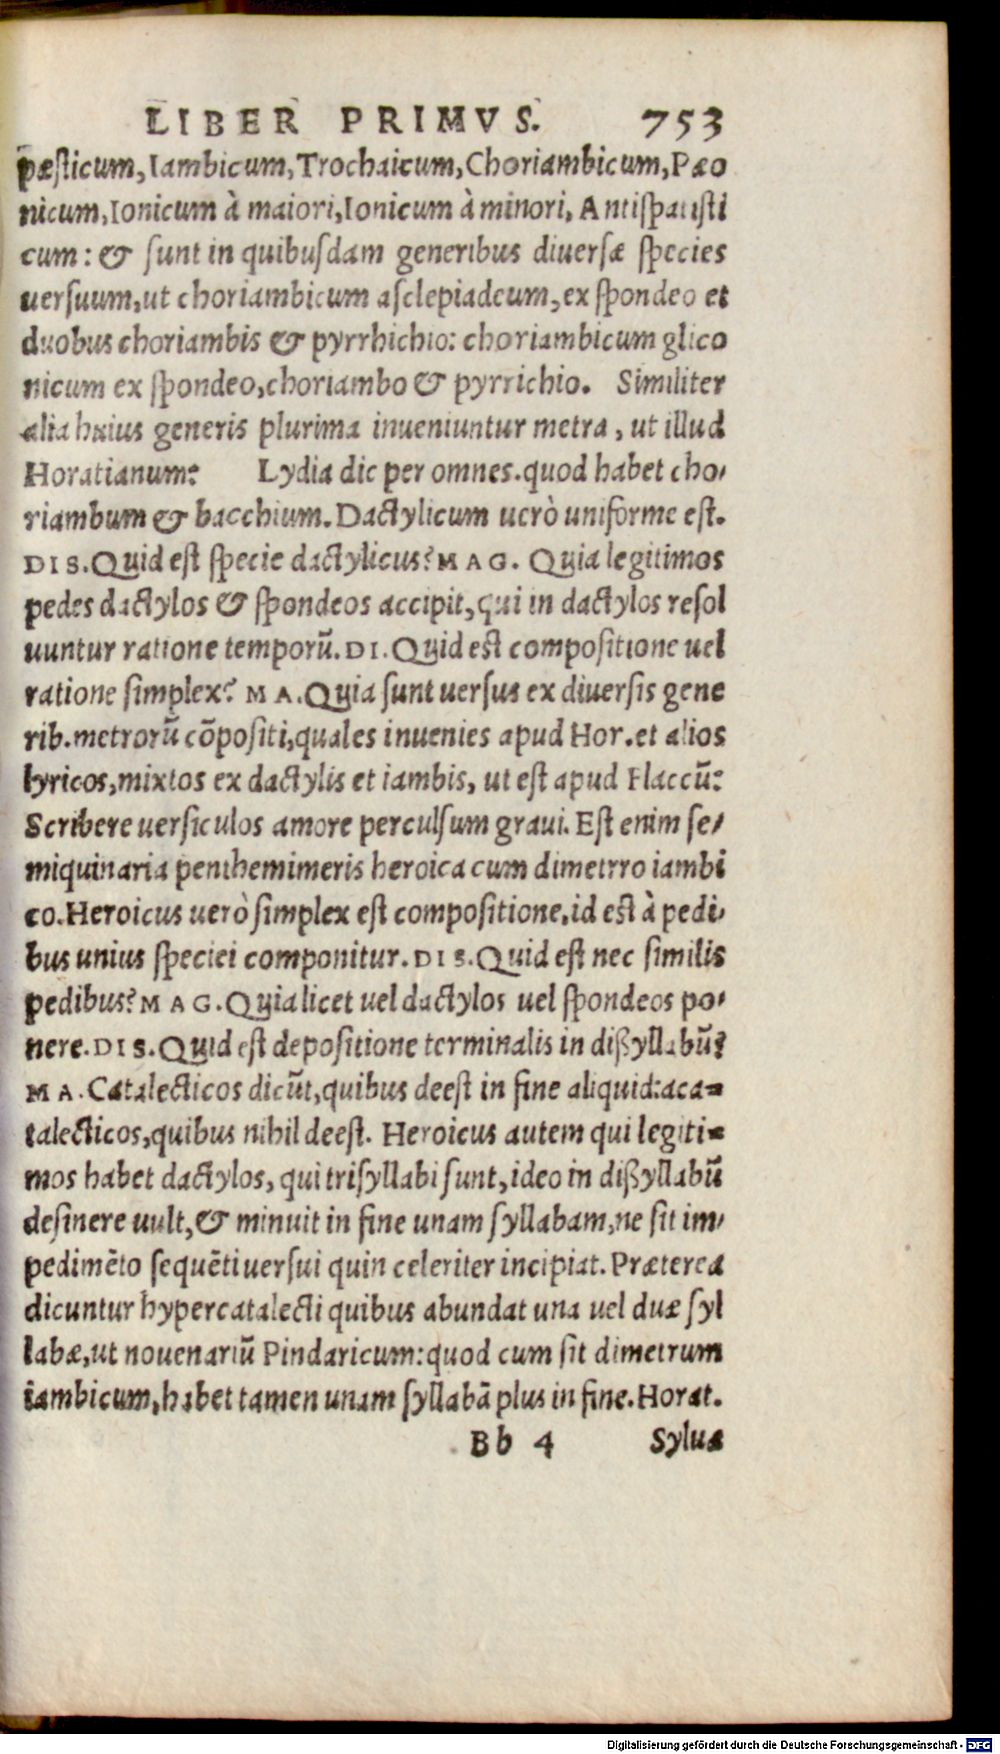 LIBER PRIMVS. 753
pæsticum, Iambicum, Trochaicum, Choriambicum, Pæo
nicum, Ionicum à maiori, Ionicum à minori, Antispausti
cum: & sunt in quibusdam generibus diuersæ species
uersuum, ut choriambicum asclepiadeum, ex spondeo et
duobus choriambis & pyrrhichio: choriambicum glico
nicum ex spondeo, choriambo & pyrrichio. Similiter
alia huius generis plurima inueniuntur metra, ut illud
Horatianum: Lydia dic per omnes. quod habet cho-
riambum & bacchium. Dactylicum uerò uniforme est.
DIS. Quid est specie dactylicus? MAG. Quia legitimos
pedes dactylos & spondeos accipit, qui in dactylos resol
uuntur ratione temporũ. DI. Quid est compositione uel
ratione simplex? MA. Quia sunt uersus ex diuersis gene
rib. metrorũ cõpositi, quales inuenies apud Hor. et alios
lyricos, mixtos ex dactylis et iambis, ut est apud Flaccũ:
Scribere uersiculos amore perculsum graui. Est enim se-
miquinaria penthemimeris heroica cum dimetrro iambi
co. Heroicus uerò simplex est compositione, id est à pedi-
bus unius speciei componitur. DIS. Quid est nec similis
pedibus? MAG. Quia licet uel dactylos uel spondeos po-
nere. DIS. Quid est depositione terminalis in dißyllabũ?
MA. Catalecticos dicũt, quibus deest in fine aliquid: aca=
talecticos, quibus nihil deest. Heroicus autem qui legiti=
mos habet dactylos, qui trisyllabi sunt, ideo in dißyllabũ
desinere uult, & minuit in fine unam syllabam, ne sit im-
pedimẽto sequẽti uersui quin celeriter incipiat. Præterea
dicuntur hypercatalecti quibus abundat una uel duæ syl
labæ, ut nouenariũ Pindaricum: quod cum sit dimetrum
iambicum, habet tamen unam syllabã plus in fine. Horat.
Bb 4 Syluæ
Digitalisierung gefördert durch die Deutsche Forschungsgemeinschaft - DFG